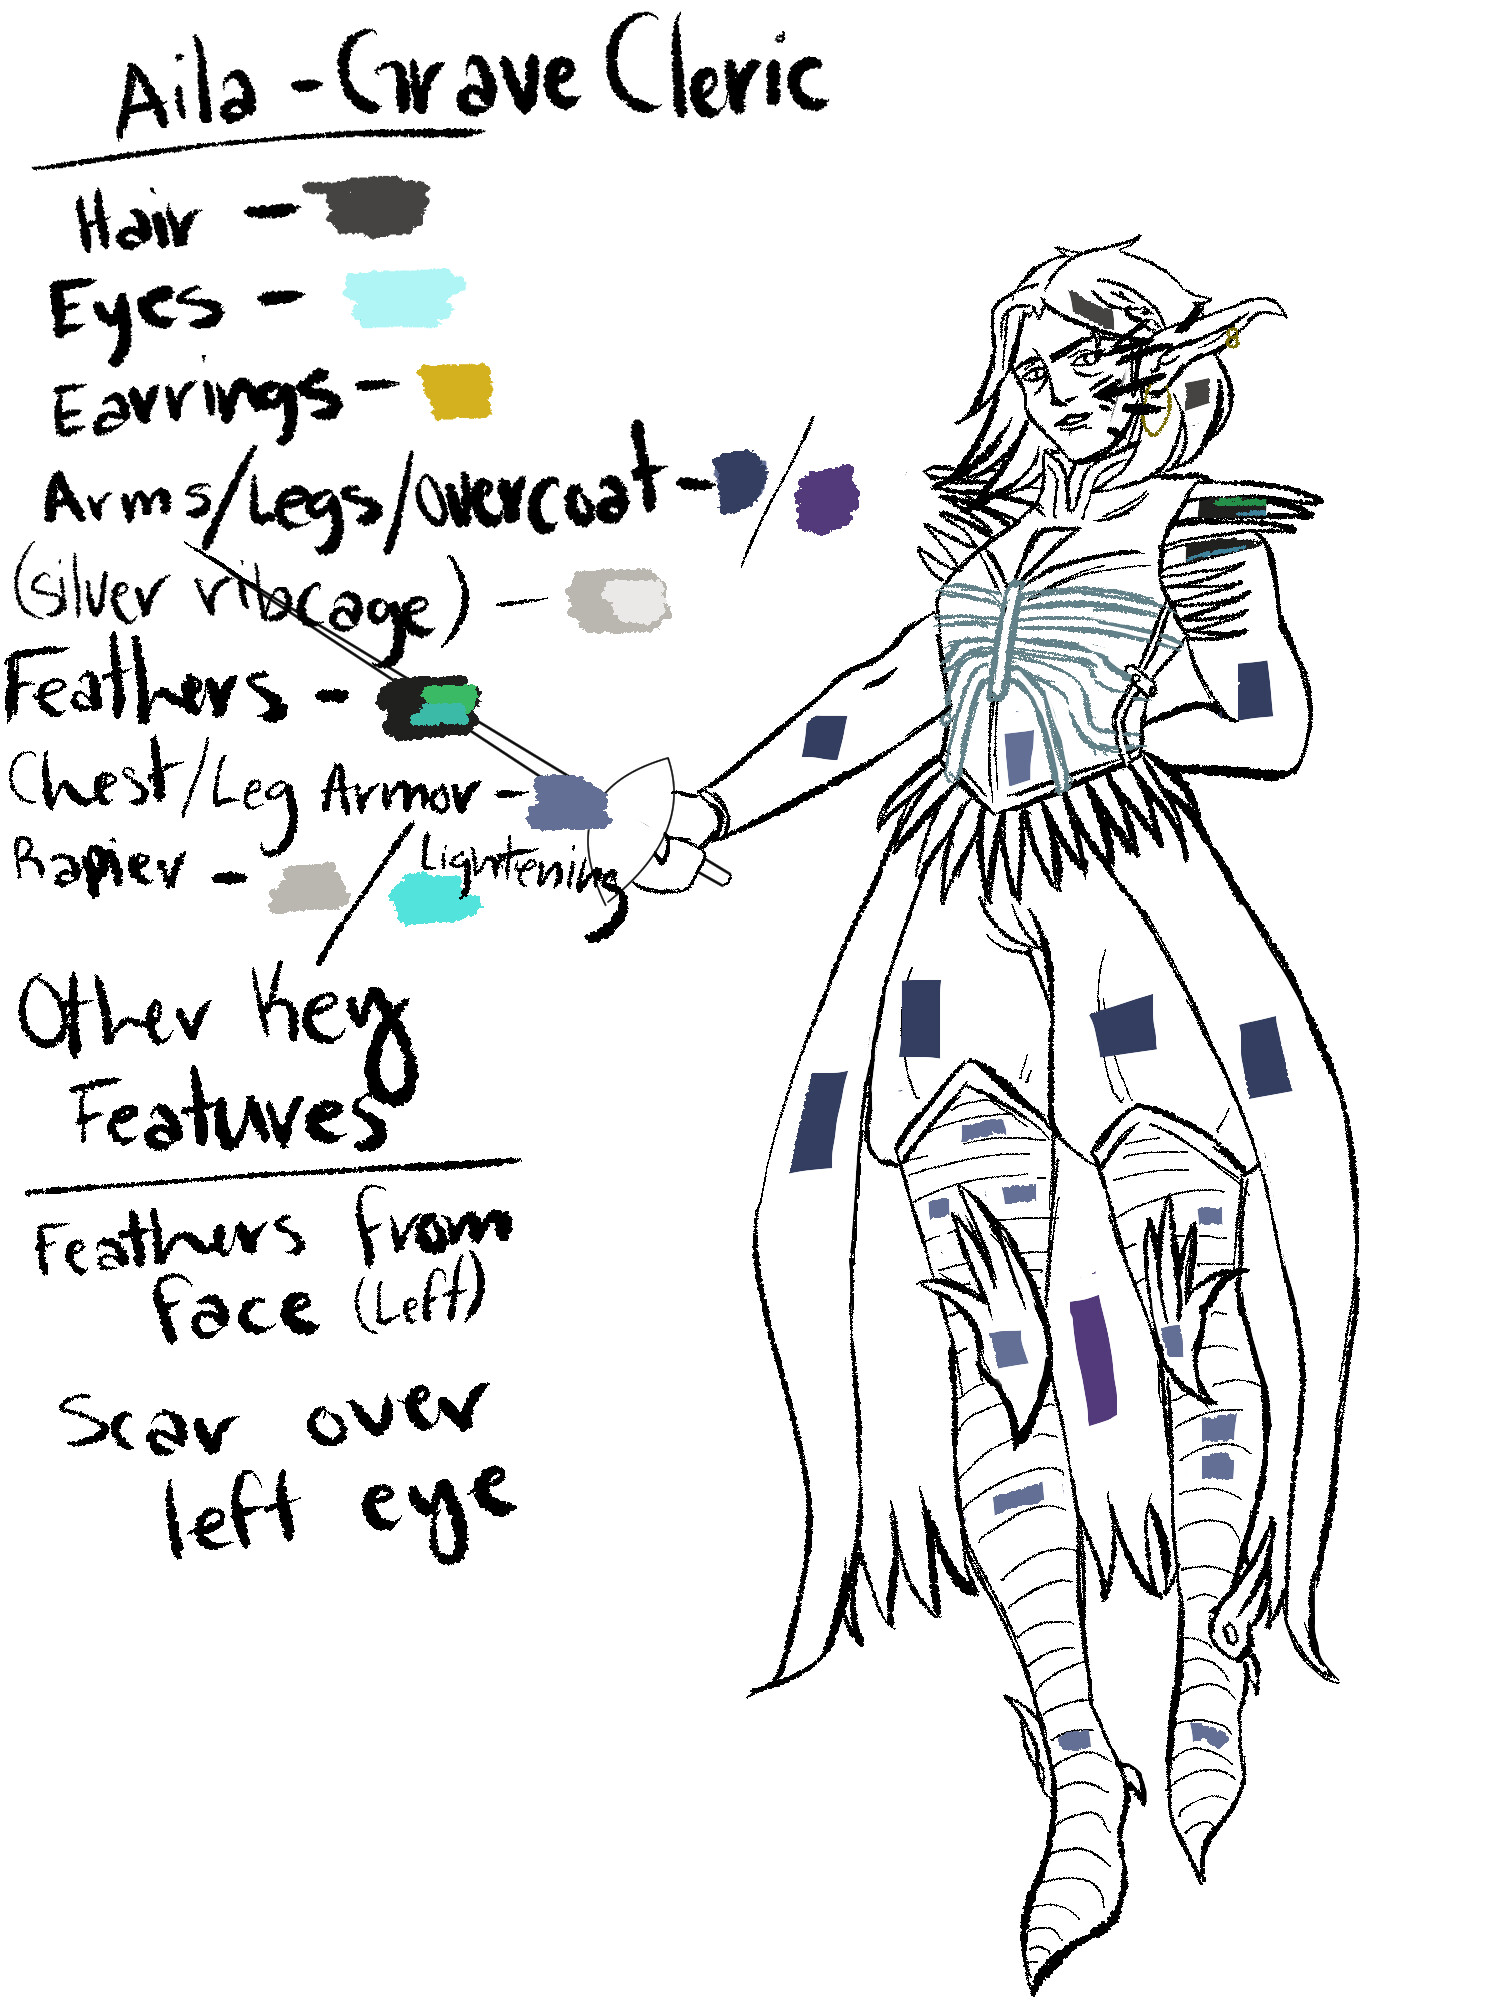 Aila - Grave Cleric
Hair -
Eyes -
Earrings -
Arms/Legs/Overcoat - /
(silver ribcage) -
Feathers -
Chest/Leg Armor -
Rapier - / Lightening
Other Key
Features
Feathers from
face (Left)
Scar over
left eye